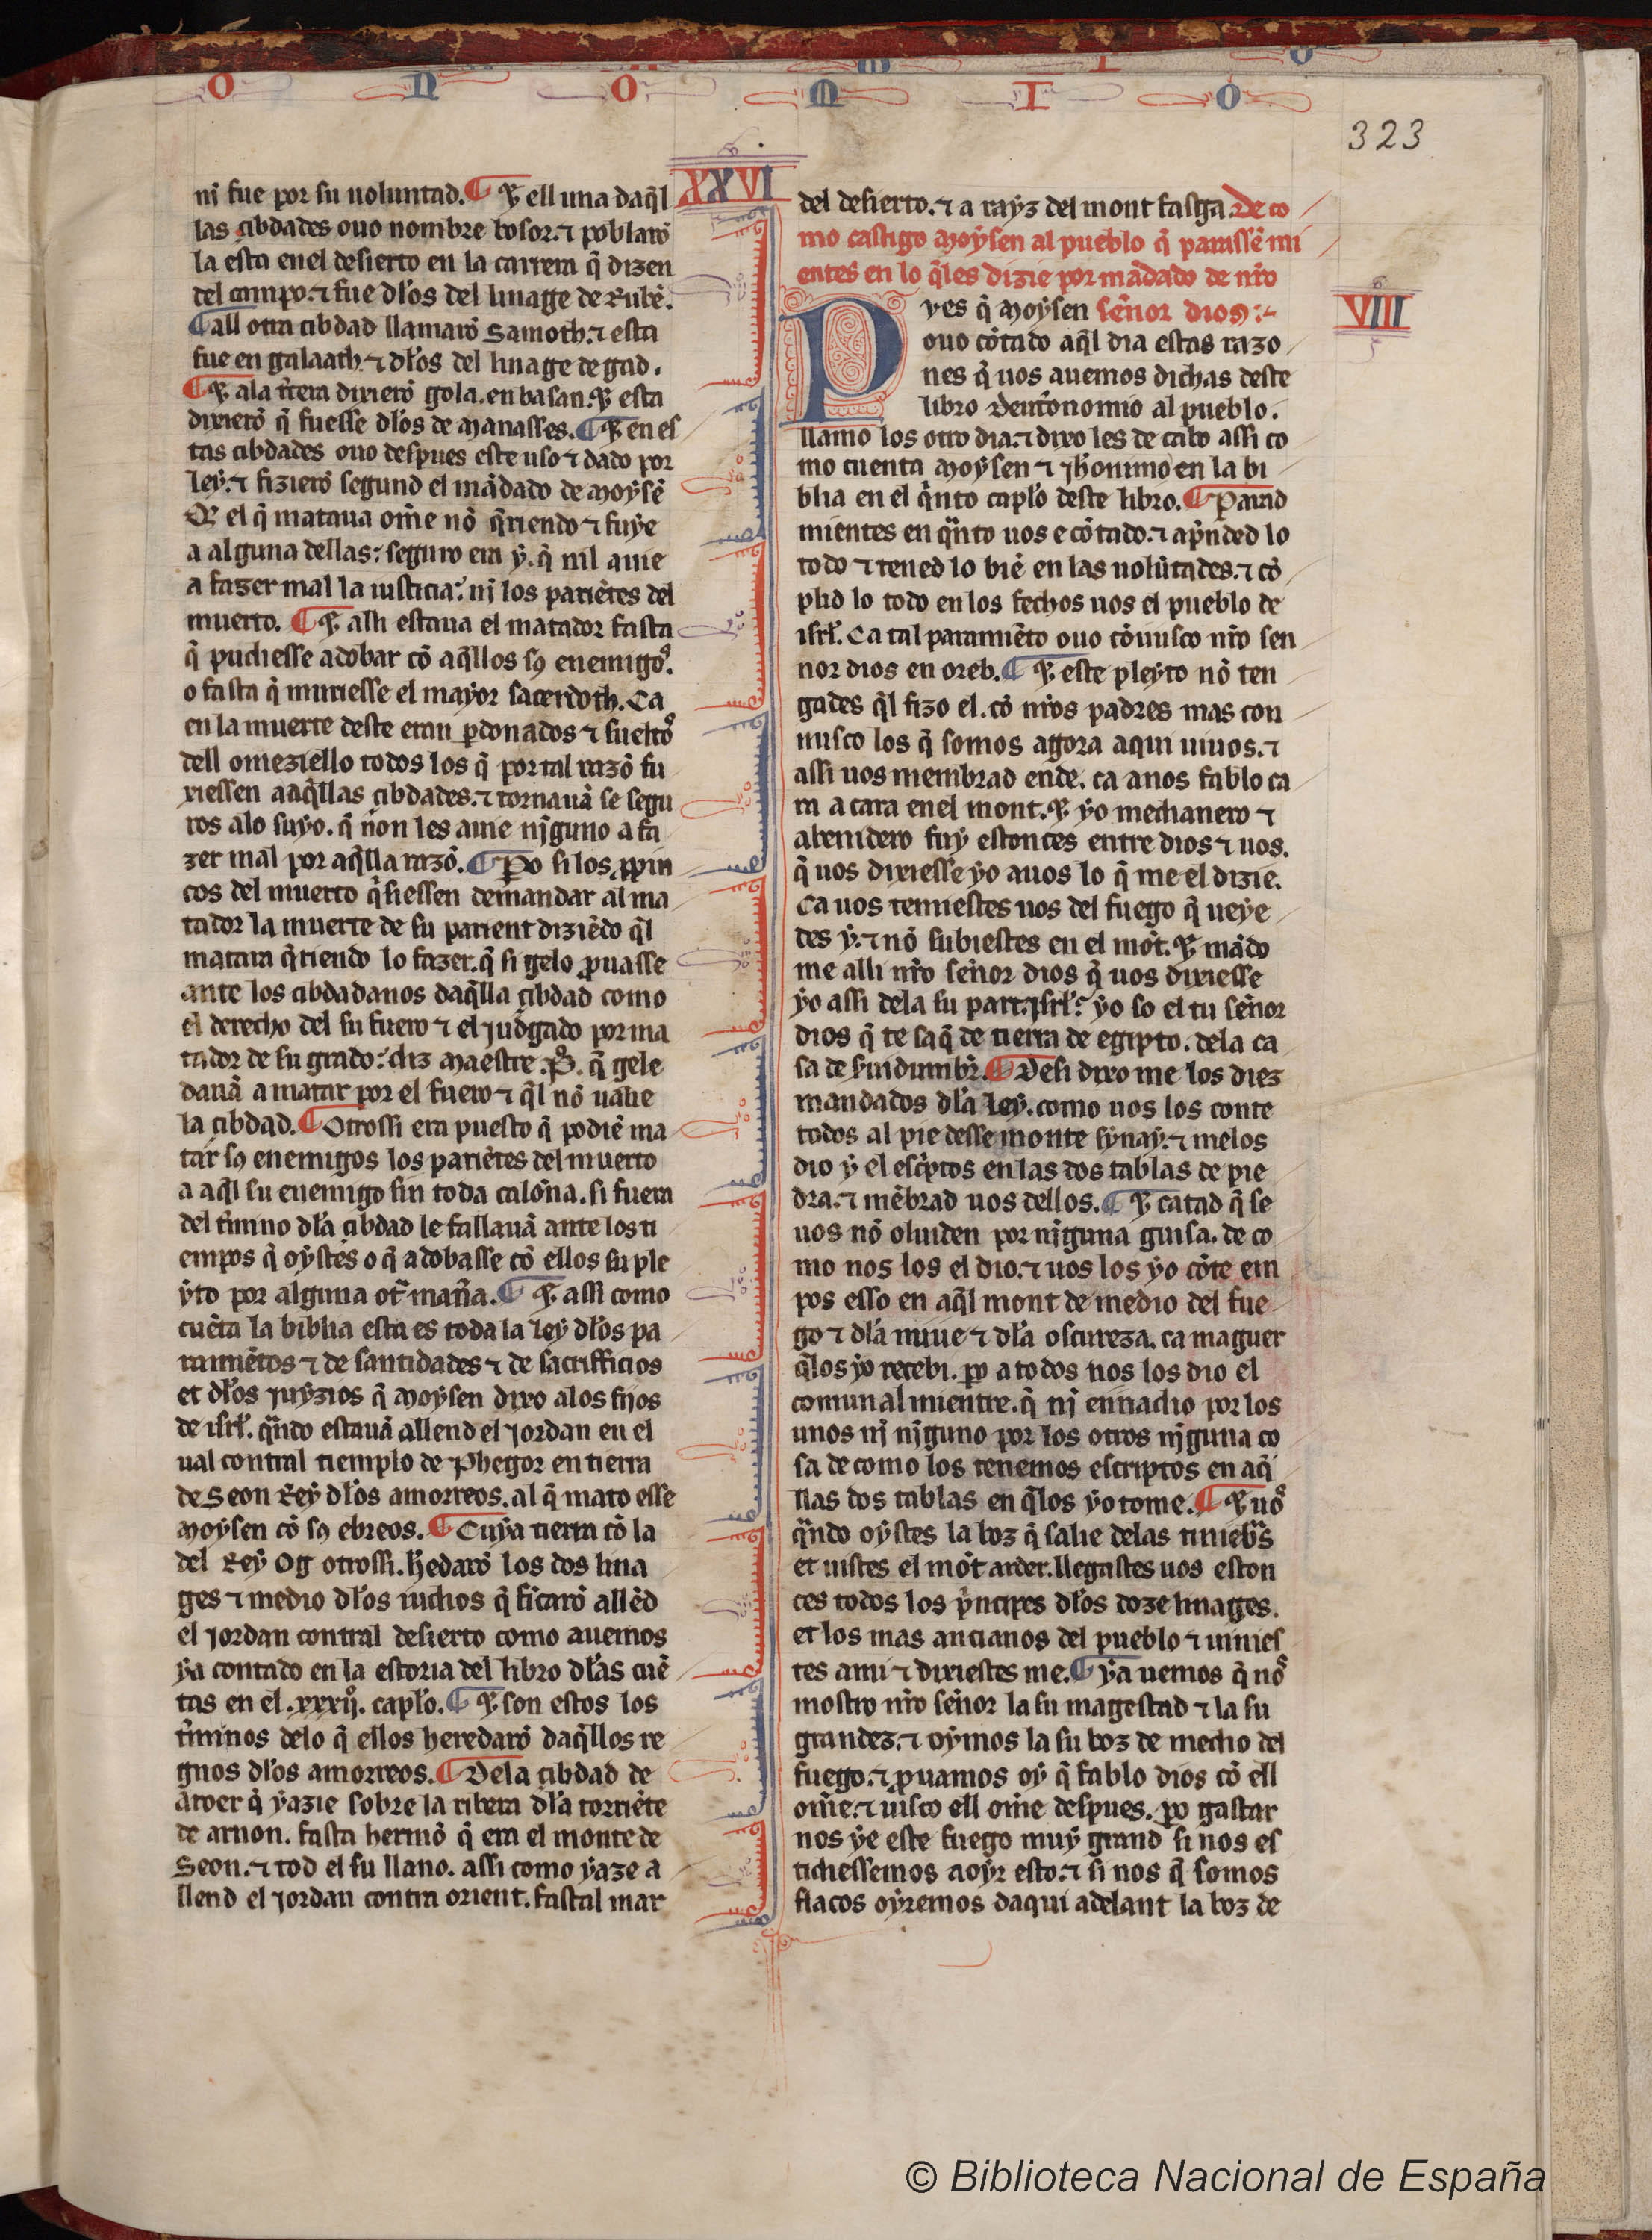 O N O M I O
323
XXVI
ni fue por su uoluntad. ¶ Et ell una daq̃l
las çibdades ouo nombre bosor. ⁊ poblarõ
la esta enel desierto en la carrera q̃ dizen
del campo. ⁊ fue dl̃os del linage de Rubẽ.
¶ all otra cibdad llamarõ Samoth. ⁊ esta
fue en galaath. ⁊ dl̃os del linage de gad.
¶ Et ala t̃cera dixierõ gola. en basan. Et esta
dixierõ q̃ fuesse dl̃os de Manasses. ¶ Et en es
tas cibdades ouo despues este uso ⁊ dado por
ley. ⁊ fizierõ segund el mãdado de Moysẽ
Q̃ el q̃ mataua om̃e nõ q̃riendo ⁊ fuye
a alguna dellas: seguro era y. q̃ nil auie
a fazer mal la iusticia: nj los pariẽtes del
muerto. ¶ Et alli estaua el matador fasta
q̃ pudiesse adobar cõ aq̃llos sꝯ enemigos.
o fasta q̃ muriesse el mayor sacerdoth. Ca
en la muerte deste eran ꝑdonados ⁊ sueltos
dell omeziello todos los q̃ por tal razõ fu
xiessen aaq̃llas çibdades. ⁊ tornauã se segu
ros alo suyo. q̃ non les auie nj̃guno a fa
zer mal por aq̃lla razõ. ¶ Po si los ꝓpin
cos del muerto q̃siessen demandar al ma
tador la muerte de su parient diziẽdo q̃l
matara q̃riendo lo fazer. q̃ si gelo ꝓuasse
ante los cibdadanos daq̃lla çibdad como
el derecho del su fuero ⁊ el judgado por ma
tador de su grado: diz Maestre .P. q̃ gele
dauã a matar por el fuero ⁊ q̃l nõ ualie
la cibdad. ¶ Otrossi era puesto q̃ podiẽ ma
tar sꝯ enemigos los pariẽtes del muerto
a aq̃l su enemigo sin toda calon̄a. si fuera
del t̃mino dl̃a çibdad le fallauã ante los ti
empos q̃ oystes o q̃ adobasse cõ ellos su ple
yto por alguna ot̃ man̄a. ¶ Et assi como
cuẽta la biblia esta es toda la Ley dl̃os pa
ramiẽtos ⁊ de santidades ⁊ de sacrifficios
et dl̃os juyzios q̃ Moysen dixo alos fijos
de isrl̃. q̃ndo estauã allend el jordan en el
ual contral tiemplo de Phegor en tierra
de Seon Rey dl̃os amorreos. al q̃ mato esse
Moysen cõ sꝯ ebreos. ¶ Cuya tierra cõ la
del Rey Og otrossi. hedarõ los dos lina
ges ⁊ medio dl̃os iudios q̃ ficarõ allẽd
el jordan contral desierto como auemos
ya contado en la estoria del libro dl̃as cuẽ
tas en el .xxxij. caplo. ¶ Et son estos los
t̃minos delo q̃ ellos heredarõ daq̃llos re
gnos dl̃os amorreos. ¶ Dela çibdad de
aroer q̃ yazie sobre la ribera dl̃a torriẽte
de arnon. fasta hermõ q̃ era el monte de
Seon. ⁊ tod el su llano. assi como yaze a
llend el jordan contra orient. fastal mar
del desierto. ⁊ a rayz del mont fasga. De co
mo castigo Moysen al pueblo q̃ parassẽ mi
entes en lo q̃les dizie por mãdado de nr̃o
VIII
Pves q̃ Moysen sen̄or dios:
ouo cõtado aq̃l dia estas razo
nes q̃ uos auemos dichas deste
libro deut̃onomio al pueblo.
llamo los otro dia. ⁊ dixo les de cabo assi co
mo cuenta Moysen ⁊ jheronimo en la bi
blia en el q̃nto caplo deste libro. ¶ Parad
mientes en q̃nto uos e cõtado. ⁊ ap̃nded lo
todo ⁊ tened lo biẽ en las uolũtades. ⁊ cõ
plid lo todo en los fechos uos el pueblo de
isrl̃. Ca tal paramiẽto ouo cõuusco nr̃o sen
nor dios en oreb. ¶ Et este pleyto nõ ten
gades q̃l fizo el. cõ nr̃os padres mas con
nusco los q̃ somos agora aqui uiuos. ⁊
assi uos membrad ende. ca anos fablo ca
ra a cara enel mont. Et yo medianero ⁊
abenidero fuy estonces entre dios ⁊ uos.
q̃ uos dixiesse yo auos lo q̃ me el dizie.
Ca uos temiestes uos del fuego q̃ ueye
des y. ⁊ nõ subiestes en el mõt. Et mãdo
me alli nr̃o sen̄or dios q̃ uos dixiesse
yo assi dela su part. isrl̃: yo so el tu sen̄or
dios q̃ te saq̃ de tierra de egipto. dela ca
sa de seruidumbr̃. ¶ Desi dixo me los diez
mandados dl̃a Ley. como uos los conte
todos al pie desse monte synay. ⁊ melos
dio y el esc̃ptos en las dos tablas de pie
dra. ⁊ mẽbrad uos dellos. ¶ Et catad q̃ se
uos nõ oluiden por nj̃guna guisa. de co
mo nos los el dio. ⁊ uos los yo cõte em
pos esso en aq̃l mont de medio del fue
go ⁊ dl̃a niue ⁊ dl̃a oscureza. ca maguer
q̃los yo recebi. ꝑo a todos nos los dio el
comunal mientre. q̃ nj ennadio por los
unos nj nj̃guno por los otros nj̃guna co
sa de como los tenemos escriptos en aq̃
llas dos tablas en q̃los yo tome. ¶ Et uos
q̃ndo oystes la boz q̃ salie delas tinieb̃s
et uistes el mõt arder. llegastes uos eston
ces todos los p̃ncipes dl̃os doze linages.
et los mas ancianos del pueblo ⁊ uinies
tes ami ⁊ dixiestes me. ¶ ya uemos q̃ nos
mostro nr̃o sen̄or la su magestad ⁊ la su
grandez. ⁊ oymos la su boz de medio del
fuego. ⁊ ꝓuamos oy q̃ fablo dios cõ ell
om̃e. ⁊ uisco ell om̃e despues. ꝑo gastar
nos ye este fuego muy grand si nos es
tidiessemos aoyr esto. ⁊ si nos q̃ somos
flacos oyremos daqui adelant la boz de
© Biblioteca Nacional de España